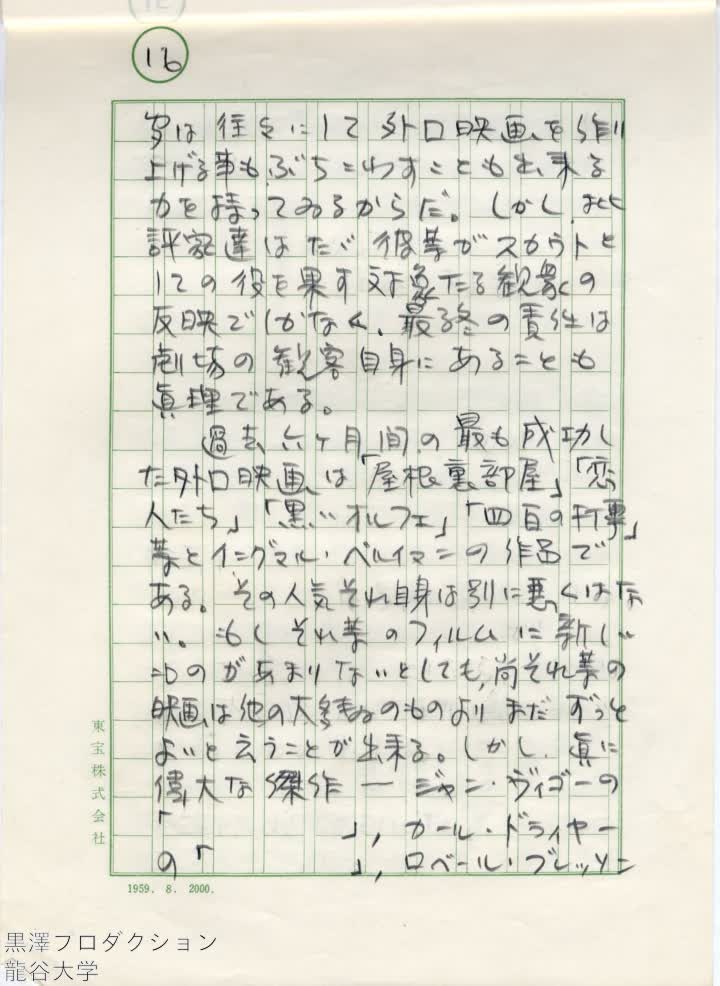 16
家は往々にして外口映画を作り
上げる事もぶちこわすことも出来る
力を持ってゐるからだ。しかし、批
評家達はたゞ彼等がスカウトと
しての役を果す対象たる観衆の
反映でしかなく、最終の責任は
劇場の観客自身にあることも
真理である。
過去六ヶ月間の最も成功し
た外口映画は「屋根裏部屋」「恋
人たち」「黒いオルフェ」「四百の刑事」
等とイングマル・ベルイマンの作品で
ある。その人気それ自身は別に悪くはな
い。もしそれ等のフィルムに新しい
ものがあまりないとしても、尚それ等の
映画は他の大ものものよりまだずっと
よいと云うことが出来る。しかし、真に
偉大な傑作ージャン・ヴィゴーの
「　　　　　　」，カール・ドライヤー
の「　　　　　　」，ロベール・ブレッソン
東宝株式会社
1959. 8. 2000.
黒澤プロダクション
龍谷大学